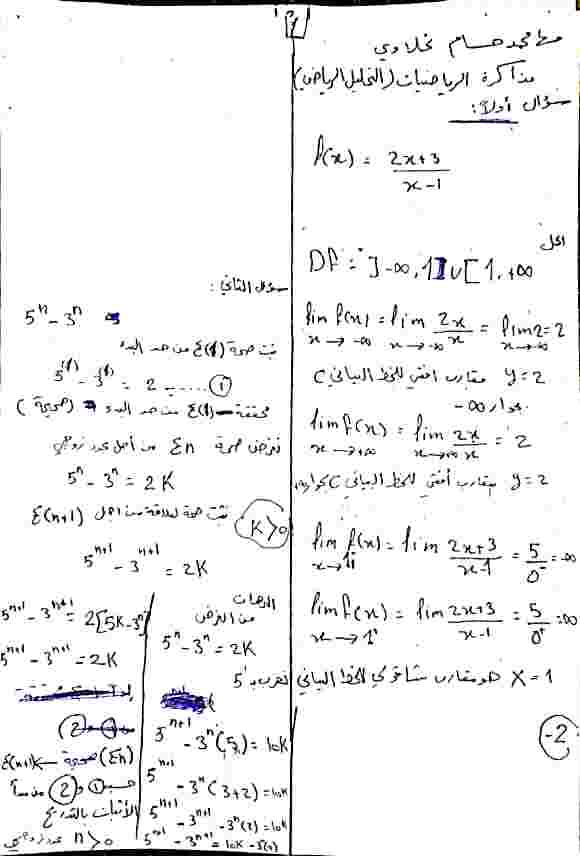 1
مذاكرة الرياضيات (التحليل الرياضي)
سؤال أولاً:
f(x) = \frac{2x+3}{x-1}
الحل
Df = ]-∞,1[∪]1,+∞
lim_{x→-∞} f(x) = lim_{x→-∞} \frac{2x}{x} = lim_{x→-∞} 2 = 2
y = 2 مقارب افقي للخط البياني C
بجوار -∞
lim_{x→+∞} f(x) = lim_{x→+∞} \frac{2x}{x} = 2
y = 2 مقارب أفقي للخط البياني C بجوار +∞
lim_{x→1^-} f(x) = lim \frac{2x+3}{x-1} = \frac{5}{0^-} = -∞
lim_{x→1^+} f(x) = lim \frac{2x+3}{x-1} = \frac{5}{0^+} = ∞
X = 1 هو مقارب شاقولي للخط البياني
-2
سؤال الثاني:
5^n - 3^n
نثبت صحة E(1) من حد البدء
5^{(1)} - 3^{(1)} = 2 ..... ①
محققة - E(1) من حد البدء (صحيحة)
نفرض صحة En من أجل عدد زوجي
5^n - 3^n = 2K
نثبت صحة العلاقة من اجل E(n+1)
K>0
5^{n+1} - 3^{n+1} = 2K
الاثبات
من الفرض
5^n - 3^n = 2K
نضرب بـ 5
5^{n+1} - 3^n(5) = 10K
5^{n+1} - 3^n(3+2) = 10K
5^{n+1} - 3^{n+1} - 3^n(2) = 10K
5^{n+1} - 3^{n+1} = 10K
5^{n+1} - 3^{n+1} = 2[5K-3^n]
5^{n+1} - 3^{n+1} = 2K
E(n+1) صحيحة (En)
حسب ① و ②
الأثبات بالتدريج
n>0 عدد زوجي